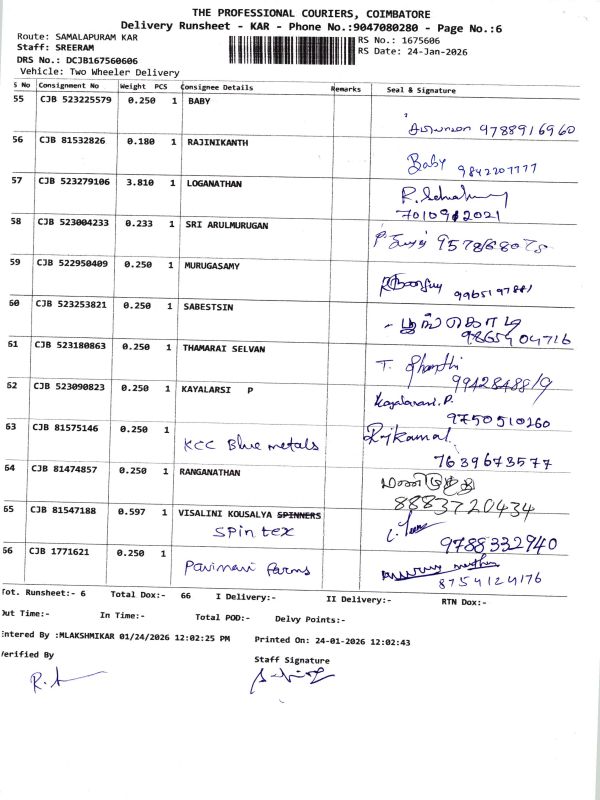 THE PROFESSIONAL COURIERS, COIMBATORE
Delivery Runsheet - KAR - Phone No.:9047080280 - Page No.:6
Route: SAMALAPURAM KAR
RS No.: 1675606
Staff: SREERAM
RS Date: 24-Jan-2026
DRS No.: DCJB167560606
Vehicle: Two Wheeler Delivery
S No Consignment No Weight PCS Consignee Details Remarks Seal & Signature
55 CJB 523225579 0.250 1 BABY
9788916960
56 CJB 81532826 0.180 1 RAJINIKANTH
Baby 9842207777
57 CJB 523279106 3.810 1 LOGANATHAN
R.
7010912021
58 CJB 523004233 0.233 1 SRI ARULMURUGAN
59 CJB 522950409 0.250 1 MURUGASAMY
9965197881
60 CJB 523253821 0.250 1 SABESTSIN
9865404716
61 CJB 523180863 0.250 1 THAMARAI SELVAN
T. Shanthi
9942848819
62 CJB 523090823 0.250 1 KAYALARSI P
Kayalarasi.P.
9750510260
63 CJB 81575146 0.250 1
KCC Blue metals
Rajkamal
7639673577
64 CJB 81474857 0.250 1 RANGANATHAN
8883720434
65 CJB 81547188 0.597 1 VISALINI KOUSALYA SPINNERS
spin tex
9788332940
66 CJB 1771621 0.250 1
Pavinavi farms
8754124176
Tot. Runsheet:- 6 Total Dox:- 66 I Delivery:- II Delivery:- RTN Dox:-
Out Time:- In Time:- Total POD:- Delvy Points:-
Entered By :MLAKSHMIKAR 01/24/2026 12:02:25 PM Printed On: 24-01-2026 12:02:43
Verified By
Staff Signature